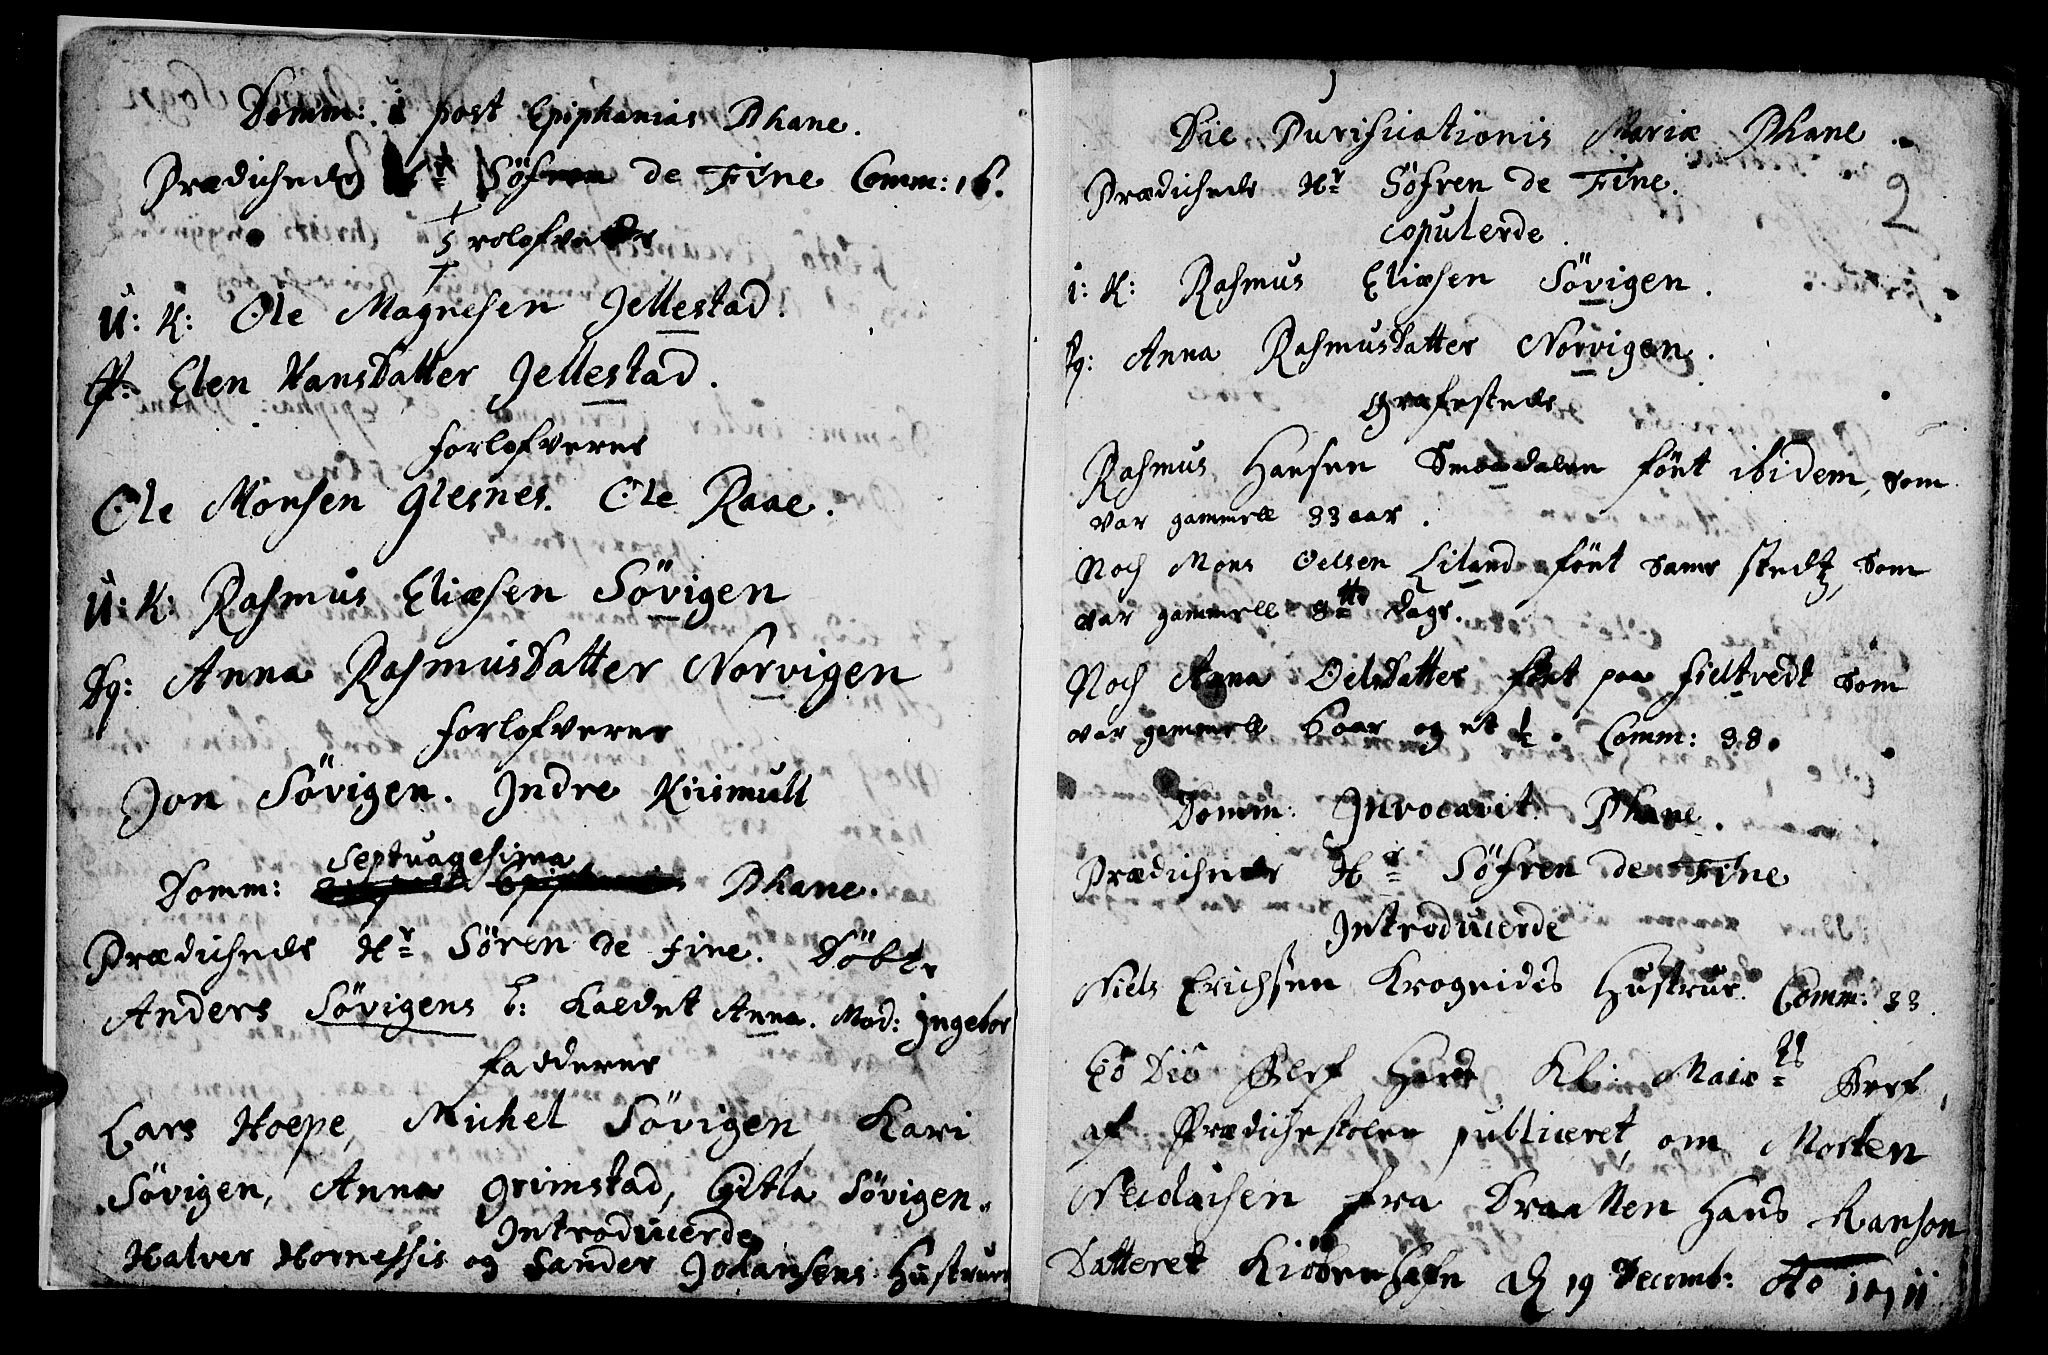 Domm: 1 post Epiphanias Phane.
Prædichede Hr Söfren de Fine Comm: 16.
Trolofvede
U: K: Ole Magnesen Jellestad.
Elen Hansdatter Jellestad.
Forlofverne
Ole Monsen Glesnes. Ole Raae.
U: K: Rasmus Eliæsen Sövigen
Pg: Anna Rasmusdatter Norvigen
Forlofverne
Jon Sövigen. Indre Kirismull
Septuagesima
Domm: Phane.
Prædichede Hr Sören de Fine. Döbt
Anders Sövigens b: kaldet Anna. Mod: Ingebor
Fadderne
Lars Hoepe, Michel Sövigen, Kari
Sövigen, Anna Grimstad, Gitla Sövigen.
Introducerde
Halver Hornessis og Sander Johansens Hustruer
Die Purificationis Mariæ Phane.
2
Prædichede Hr Söfren de Fine.
Copulerde.
1: K: Rasmus Eliæsen Sövigen.
Pg: Anna Rasmusdatter Norvigen.
Grafestede
Rasmus Hansen Smördalen född ibidem, som
var gammell 33 aar.
Noch Mons Oelsen Liland född same stedtz, som
var gammell 8tte dage.
Noch Anna Oelsdatter född paa Fieltvedt som
var gammell 6 aar og et ½. Comm: 38.
Domm: Invocavit Phane.
Prædichede Hr Söfren de Fine
Introducerde
Niels Erichsen Krogeides Hustrue. Comm: 33
Eo Die blef Hans Kl: Maiæts Bref
af Prædichestolen publiceret, om Morten
Neidaisen fra Draatten Hans Ranson
Datteret Kiöbenhafn d 19 Decemb: Ao 1711